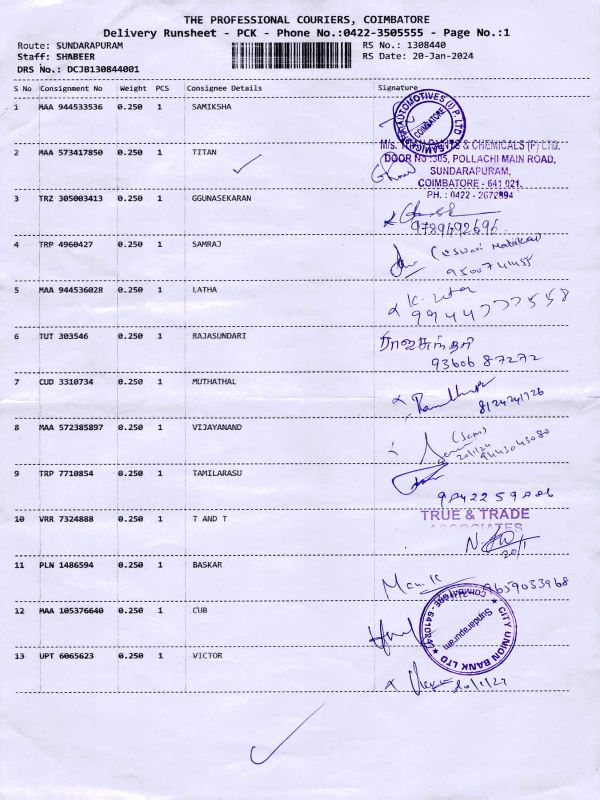 THE PROFESSIONAL COURIERS, COIMBATORE
Delivery Runsheet - PCK - Phone No.:0422-3505555 - Page No.:1
Route: SUNDARAPURAM RS No.: 1308440
Staff: SHABEER RS Date: 20-Jan-2024
DRS No.: DCJB130844001
S No Consignment No Weight PCS Consignee Details Signature
1 MAA 944533536 0.250 1 SAMIKSHA
AUTOMOTIVES (I) P. LTD.
COIMBATORE
2 MAA 573417850 0.250 1 TITAN
M/s. TITAN PAINTS & CHEMICALS (P) LTD.
DOOR No :305, POLLACHI MAIN ROAD,
SUNDARAPURAM,
COIMBATORE - 641 021.
PH. : 0422 - 2672894
3 TRZ 305003413 0.250 1 GGUNASEKARAN
9789692696
4 TRP 4960427 0.250 1 SAMRAJ
5 MAA 944536028 0.250 1 LATHA
K. Latha
9944777558
6 TUT 303546 0.250 1 RAJASUNDARI
ராஜசுந்தரி
93606 87272
7 CUD 3310734 0.250 1 MUTHATHAL
8124741726
8 MAA 572385897 0.250 1 VIJAYANAND
20/1/24
9443045080
9 TRP 7710854 0.250 1 TAMILARASU
10 VRR 7324888 0.250 1 T AND T
TRUE & TRADE
ASSOCIATES
20/1
11 PLN 1486594 0.250 1 BASKAR
Mani.K 9659033968
12 MAA 105376640 0.250 1 CUB
CITY UNION BANK LTD
Sundarapuram
COIMBATORE - 641024
13 UPT 6065623 0.250 1 VICTOR
20/1/24